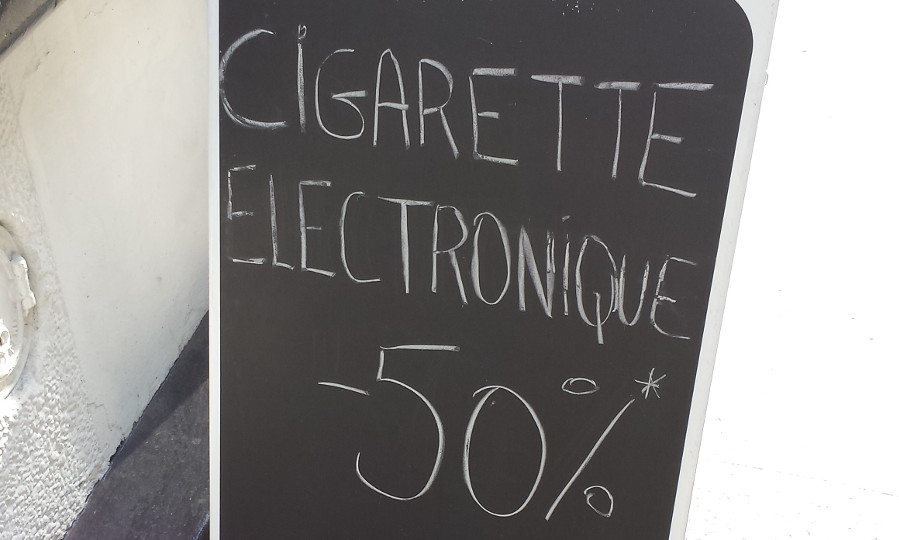 CIGARETTE
ELECTRONIQUE
-50%*